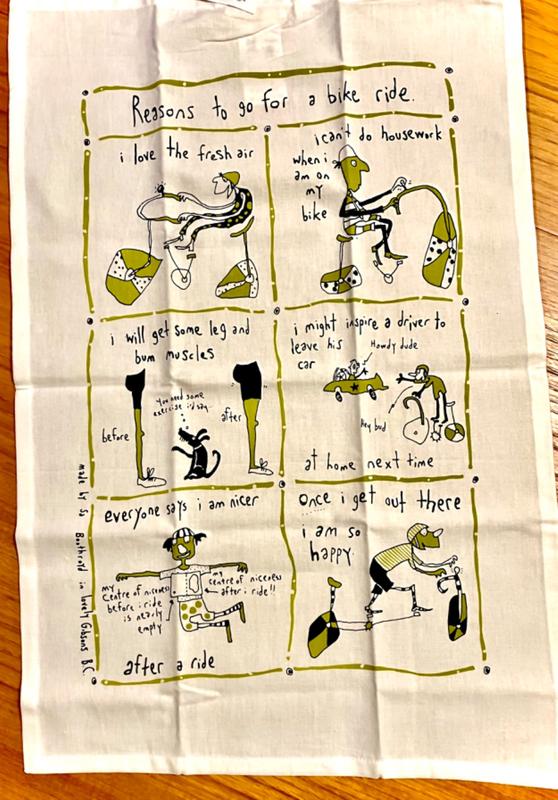 Reasons to go for a bike ride.
i love the fresh air
i can't do housework
when i
am on
my
bike
i will get some leg and
bum muscles
before
you need some
exercise i'd say
after
i might inspire a driver to
leave his
car
Howdy dude
Hey bud
at home next time
everyone says i am nicer
my
centre of niceness
before i ride
is nearly
empty
my
centre of niceness
after i ride!!
after a ride
once i get out there
i am so
happy
made by SJ Boothroyd in lovely Gibsons B.C.